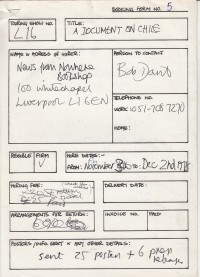 BOOKING FORM NO. 5
TOURING SHOW NO.
L16
TITLE:
A DOCUMENT ON CHILE
NAME & ADDRESS OF HIRER:
News from Nowhere
Bookshop
100 Whitechapel
Liverpool L1 6EN
PERSON TO CONTACT
Bob Dant
TELEPHONE NO.
WORK: 051-708 7270
HOME:
POSSIBLE FIRM
HIRE DATES:
FROM: November TO: Dec 2nd
HIRING FEE:
DELIVERY DATE:
ARRANGEMENTS FOR RETURN:
INVOICE NO. PAID
POSTERS/INFO SENT & ANY OTHER DETAILS:
sent 25 posters + 6 press
release